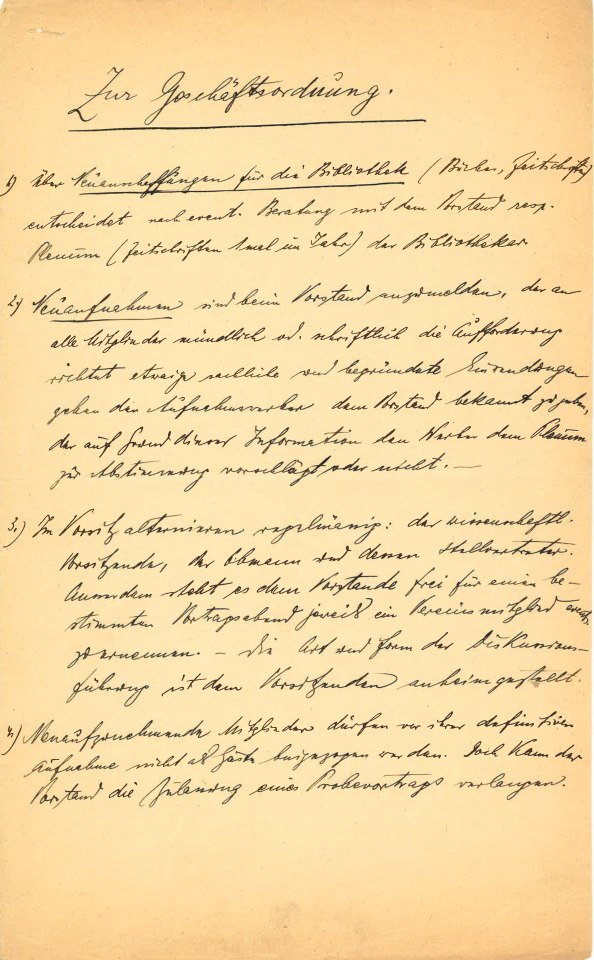 Zur Geschäftsordnung.
1) Über Neuanschaffungen für die Bibliothek (Bücher, Zeitschriften)
entscheidet nach event. Beratung mit dem Vorstand resp.
Plenum (Zeitschriften 1 mal im Jahr) der Bibliothekar.
2.) Neuaufnahmen sind beim Vorstand anzumelden, der an
alle Mitglieder mündlich od. schriftlich die Aufforderung
richtet etwaige sachliche und begründete Einwendungen
gegen den Aufnahmswerber dem Vorstand bekannt zu geben,
der auf Grund dieser Information den Werber dem Plenum
zur Abstimmung vorschlägt oder nicht. —
3.) Im Vorsitz alternieren regelmässig: der wissenschaftl.
Vorsitzende, der Obmann und dessen Stellvertreter.
Ausserdem steht es dem Vorstande frei für einen be-
stimmten Vortragsabend jeweils ein Vereinsmitglied
zu ernennen. – Die Art und Form der Diskussions-
führung ist dem Vorsitzenden anheimgestellt.
4.) Neuaufzunehmende Mitglieder dürfen vor ihrer definitiven
Aufnahme nicht als Gäste beigezogen werden. Doch kann der
Vorstand die Zulassung eines Probevortrags verlangen.